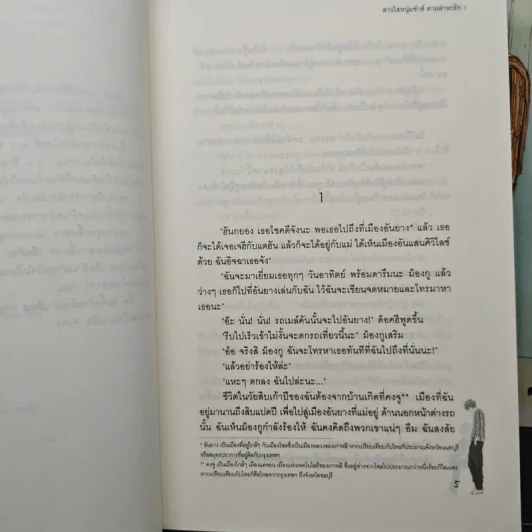 สาวใสหนุ่มซ่าส์ ตามล่าหารัก 1
1
"ฮันกยอง เธอโชคดีจังนะ พอเธอไปถึงที่เมืองอันยาง* แล้ว เธอ
ก็จะได้เจอเจฮีกับแดฮัน แล้วก็จะได้อยู่กับแม่ ได้เห็นเมืองอันแสนศิวิไลซ์
ด้วย ฉันอิจฉาเธอจัง"
"ฉันจะมาเยี่ยมเธอทุกๆ วันอาทิตย์ พร้อมดารึมนะ มีองกู แล้ว
ว่างๆ เธอก็ไปที่อันยางเล่นกับฉัน ไว้ฉันจะเขียนจดหมายและโทรมาหา
เธอนะ"
"อ๊ะ นั่น! นั่น! รถเมล์คันนั้นจะไปอันยาง!" ด็อคฮีพูดขึ้น
"รีบไปเร็วเข้าไม่งั้นจะตกรถเที่ยวนี้นะ" มีองกูเสริม
"อ้อ จริงสิ มีองกู ฉันจะโทรหาเธอทันทีที่ฉันไปถึงที่นั่นนะ!"
"แล้วอย่าร้องไห้ล่ะ"
"แหะๆ ตกลง ฉันไปล่ะนะ..."
ชีวิตในวัยสิบเก้าปีของฉันต้องจากบ้านเกิดที่คงจู** เมืองที่ฉัน
อยู่มานานถึงสิบแปดปี เพื่อไปสู่เมืองอันยางที่แม่อยู่ ด้านนอกหน้าต่างรถ
นั้น ฉันเห็นมีองกูกำลังร้องไห้ ฉันคงคิดถึงพวกเขาแน่ๆ อืม ฉันสงสัย
* อันยาง เป็นเมืองที่อยู่ใกล้ๆ กับเมืองโซลซึ่งเป็นเมืองหลวงของเกาหลี หากเปรียบเทียบกับไทยก็ประมาณจังหวัดนนทบุรี
หรือสมุทรปราการที่อยู่ติดกับกรุงเทพฯ
** คงจู เป็นเมืองใกล้ๆ เมืองแดจอน
5